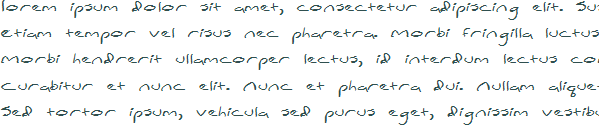 lorem ipsum dolor sit amet, consectetur adipiscing elit.
etiam tempor vel risus nec pharetra. Morbi fringilla luctus
Morbi hendrerit ullamcorper lectus, id interdum lectus
curabitur et nunc elit. Nunc et pharetra dui. Nullam
Sed tortor ipsum, vehicula sed purus eget, dignissim